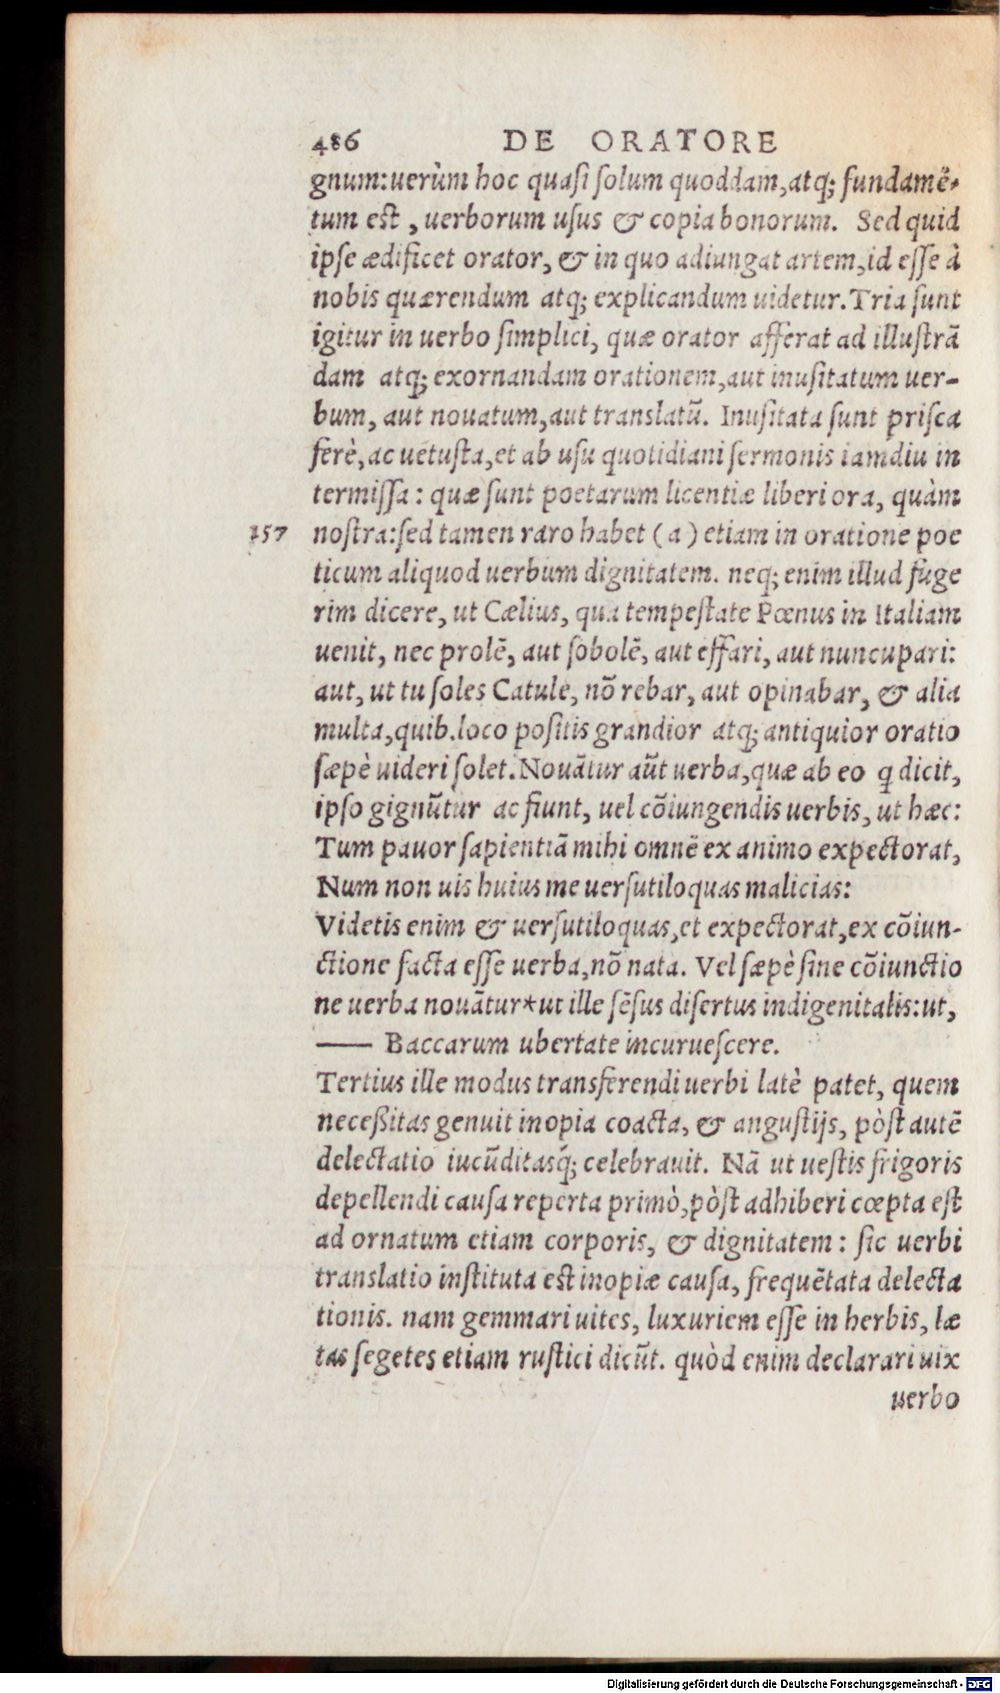 486 DE ORATORE
gnum:uerùm hoc quasi solum quoddam,atq; fundamē-
tum est, uerborum usus & copia bonorum. Sed quid
ipse ædificet orator, & in quo adiungat artem,id esse à
nobis quærendum atq; explicandum uidetur.Tria sunt
igitur in uerbo simplici, quæ orator afferat ad illustrā
dam atq; exornandam orationem,aut inusitatum uer-
bum, aut nouatum,aut translatū. Inusitata sunt prisca
ferè,ac uetusta,et ab usu quotidiani sermonis iamdiu in
termissa: quæ sunt poetarum licentiæ liberiora, quàm
257 nostra:sed tamen raro habet (a) etiam in oratione poe
ticum aliquod uerbum dignitatem. neq; enim illud fuge
rim dicere, ut Cælius, qua tempestate Pœnus in Italiam
uenit, nec prolē, aut sobolē, aut effari, aut nuncupari:
aut, ut tu soles Catule, nō rebar, aut opinabar, & alia
multa,quib.loco positis grandior atq; antiquior oratio
sæpè uideri solet.Nouātur aūt uerba,quæ ab eo q dicit,
ipso gignūtur ac fiunt, uel cōiungendis uerbis, ut hæc:
Tum pauor sapientiā mihi omnē ex animo expectorat,
Num non uis huius me uersutiloquas malicias:
Videtis enim & uersutiloquas,et expectorat,ex cōiun-
ctione facta esse uerba,nō nata. Vel sæpè sine cōiunctio
ne uerba nouātur*ut ille sēsus disertus indigenitalis:ut,
—— Baccarum ubertate incuruescere.
Tertius ille modus transferendi uerbi latè patet, quem
necessitas genuit inopia coacta, & angustijs, pòst autē
delectatio iucūditasq́; celebrauit. Nā ut uestis frigoris
depellendi causa reperta primò,pòst adhiberi cœpta est
ad ornatum etiam corporis, & dignitatem: sic uerbi
translatio instituta est inopiæ causa, frequētata delecta
tionis. nam gemmari uites, luxuriem esse in herbis, læ
tas segetes etiam rustici dicūt. quòd enim declarari uix
uerbo
Digitalisierung gefördert durch die Deutsche Forschungsgemeinschaft - DFG